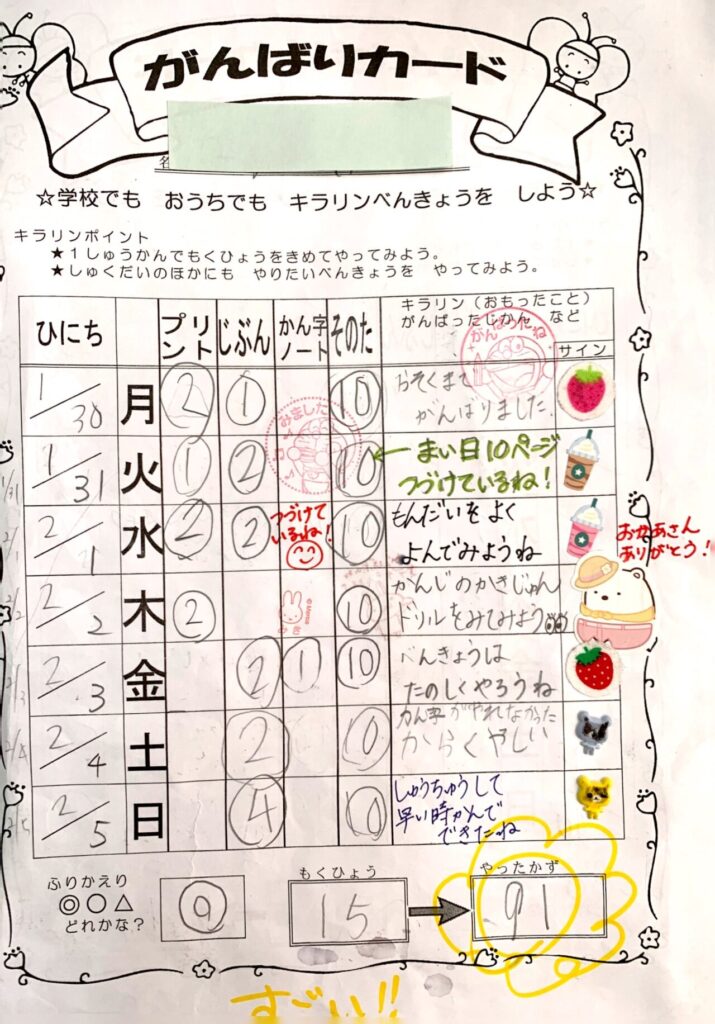 がんばりカード
☆学校でも おうちでも キラリンべんきょうを しよう☆
キラリンポイント
★1しゅうかんでもくひょうをきめてやってみよう。
★しゅくだいのほかにも やりたいべんきょうを やってみよう。
ひにち プリント じぶん かん字ノート そのた キラリン(おもったこと) がんばったじかん など サイン
がんばったね
1/30 月 2 1 10 おそくまで
がんばりました。
みました
1/31 火 1 2 10 ← まい日10ページ
つづけているね!
1/31
2/1 水 2 2 つづけて
いるね!
10 もんだいをよく
よんでみようね
おかあさん
ありがとう!
2/1
2/2 木 2 10 かんじのかきじゅん
ドリルをみてみよう
2/2
2/3 金 2 1 10 べんきょうは
たのしくやろうね
2/3
2/4 土 2 10 かん字がやれなかった
からくやしい
2/4
2/5 日 4 10 しゅうちゅうして
早い時かんで
できたね
2/5
ふりかえり
◎○△
どれかな?
◎
もくひょう
15
やったかず
91
すごい!!